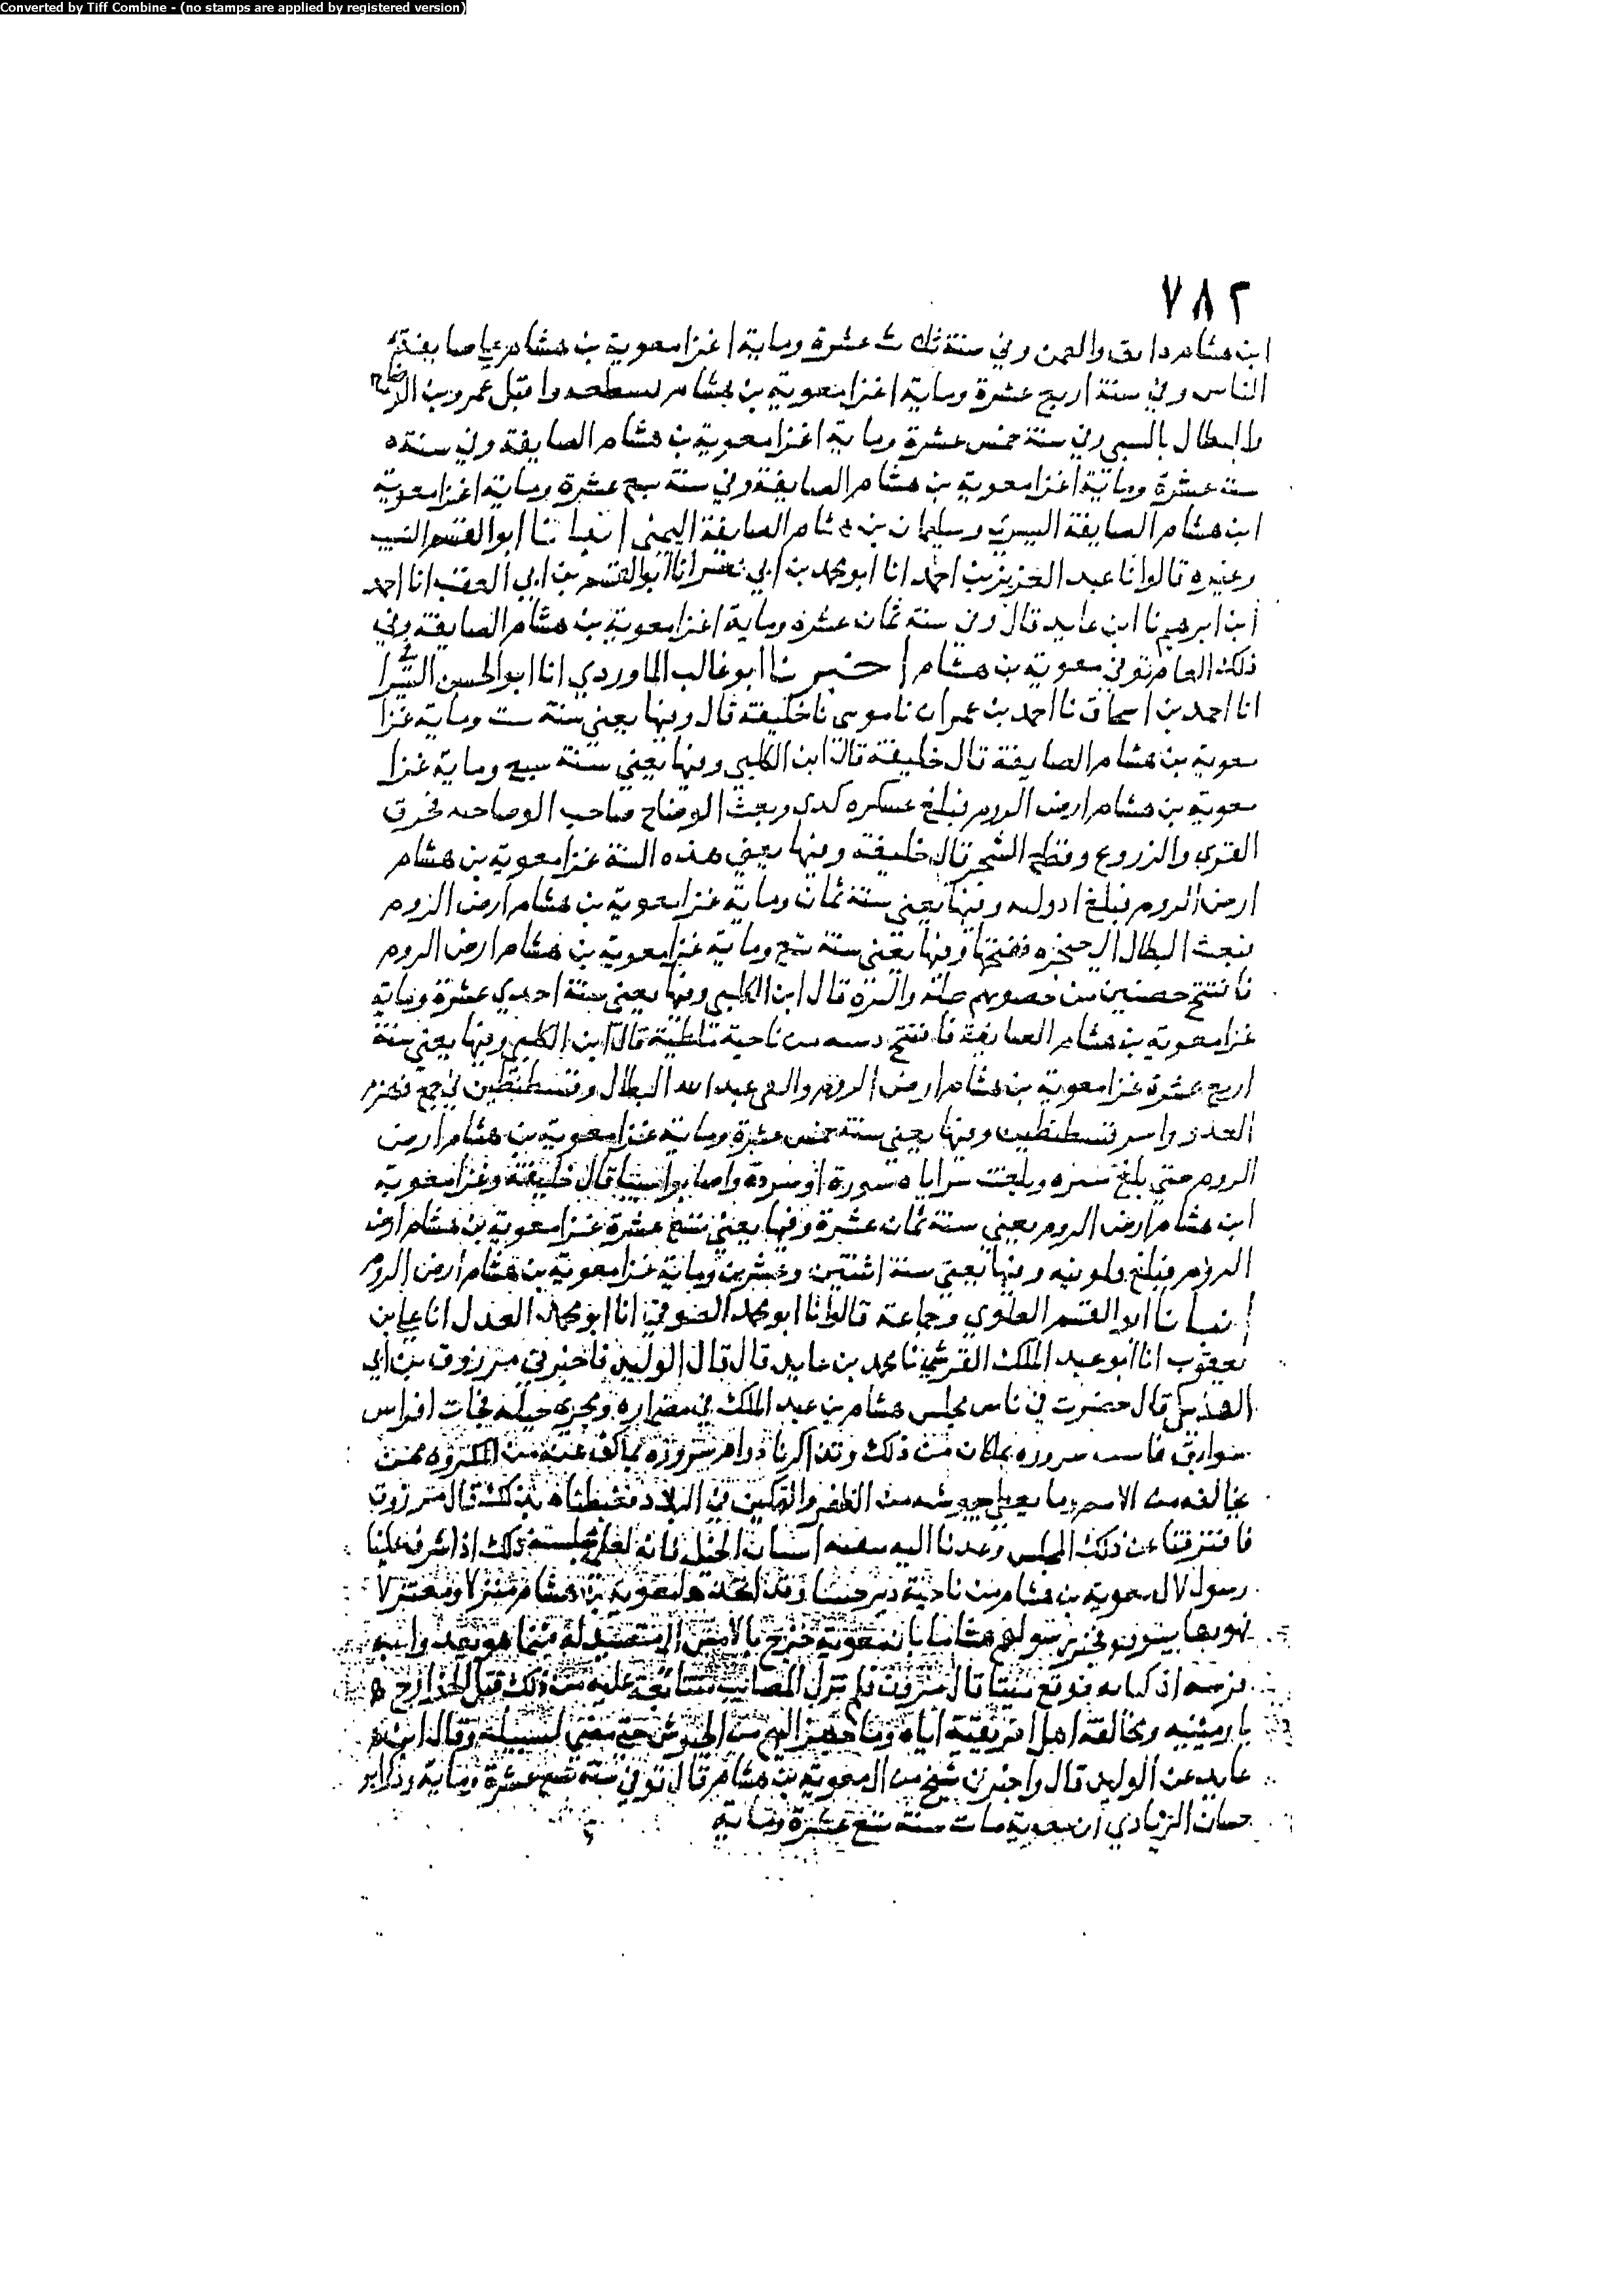 Converted by Tiff Combine - (no stamps are applied by registered version)
٧٨٢
ابن هشام دابق والعمق وفي سنة ثلاث عشرة وماية اغزا معوية بن هشام على صايفة
الناس وفي سنة اربع عشرة وماية اغزا معوية بن هشام واقبل عمرو بن
والبطال بالسبي وفي سنة خمس عشرة وماية اغزا معوية بن هشام الصايفة وفي سنة
ستة عشرة وماية اغزا معوية بن هشام الصايفة وفي سنة سبع عشرة وماية اغزا معوية
ابن هشام الصايفة اليسرى وسليمان بن هشام الصايفة اليمنى انبانا ابو القسم النسيب
وغيره قالوا انا عبد العزيز بن احمد انا ابو محمد بن ابي نصر انا ابو القسم بن ابي العقب انا احمد
ابن ابرهيم نا ابن عايد قال وفي سنة ثمان عشرة وماية اغزا معوية بن هشام الصايفة وفي
ذلك العام توفي معوية بن هشام اخبرنا ابو غالب الماوردي انا ابو الحسن السيرا
انا احمد بن اسحاق نا احمد بن عمران نا موسى نا خليفة قال وفيها يعني سنة ست وماية غزا
معوية بن هشام الصايفة قال خليفة قال ابن الكلبي وفيها يعني سنة سبع وماية غزا
معوية بن هشام ارض الروم فبلغ عسكره كدى وبعث الوضاح صاحب الوضاحيه فحرق
القرى والزروع وقطع الشجر قال خليفة وفيها يعني هذه السنة غزا معوية بن هشام
ارض الروم فبلغ ادوليه وفيها يعني سنة ثمان وماية غزا معوية بن هشام ارض الروم
فبعث البطال الى ففتحها وفيها يعني سنة تسع وماية غزا معوية بن هشام ارض الروم
فافتتح حصنين من حصونهم قال ابن الكلبي وفيها يعني سنة احدى عشرة وماية
غزا معوية بن هشام الصايفة فافتتح من ناحية ملطية قال ابن الكلبي وفيها يعني سنة
اربع عشرة غزا معوية بن هشام ارض الروم والتقى عبد الله البطال وقسطنطين في جمع فهزم
العدو واسر قسطنطين وفيها يعني سنة خمس عشرة وماية غزا معوية بن هشام ارض
الروم حتى بلغ وبلغت سراياه واصابوا سبيا قال خليفة وغزا معوية
ابن هشام ارض الروم يعني سنة ثمان عشرة وفيها يعني تسع عشرة غزا معوية بن هشام ارض
الروم فبلغ وفيها يعني سنة اثنتين وعشرين وماية غزا معوية بن هشام ارض الروم
انبانا ابو القسم العلوي وجماعة قالوا انا ابو محمد الصوفي انا ابو محمد العدل انا علي بن
يعقوب انا ابو عبد الملك القرشي نا محمد بن عايد قال قال الوليد فاخبرني مرزوق بن ابي
الهذيل قال حضرت في ناس مجلس هشام بن عبد الملك في مضماره ومجرى خيله فجات افراس
سوابق سروره بمكان من ذلك وتذاكرنا دوام سروره بما كف عنه من المكروه ممن
يخالفه من الامم وما يعطى جيوشه من الظفر والتمكين في البلاد فغبطناه بذلك قال مرزوق
فافترقنا عن ذلك المجلس وغدنا اليه الخيل فانه لعلى مجلسه ذلك اذ اشرف علينا
رسول لال معوية بن هشام من ناحية دير حنينا وقد اتخذه معوية بن هشام منزلا ومعتزلا
يخبر رسولهم هشاما بان معوية خرج بالامس الى متصيد له فبينما هو يعدو به
فرسه اذ كبا به فوقع ميتا قال مرزوق فلم تزل المصايب متتابعة عليه من ذلك قتل الجراح
بارمينيه ومخالفة اهل افريقية اياه وما جهز اليهم من الجيوش حتى مضى لسبيله وقال ابن
عايد عن الوليد قال واخبرني شيخ من ال معوية بن هشام قال توفي سنة تسع عشرة وماية وذكر ابو
حسان الزيادي ان معوية مات سنة تسع عشرة وماية